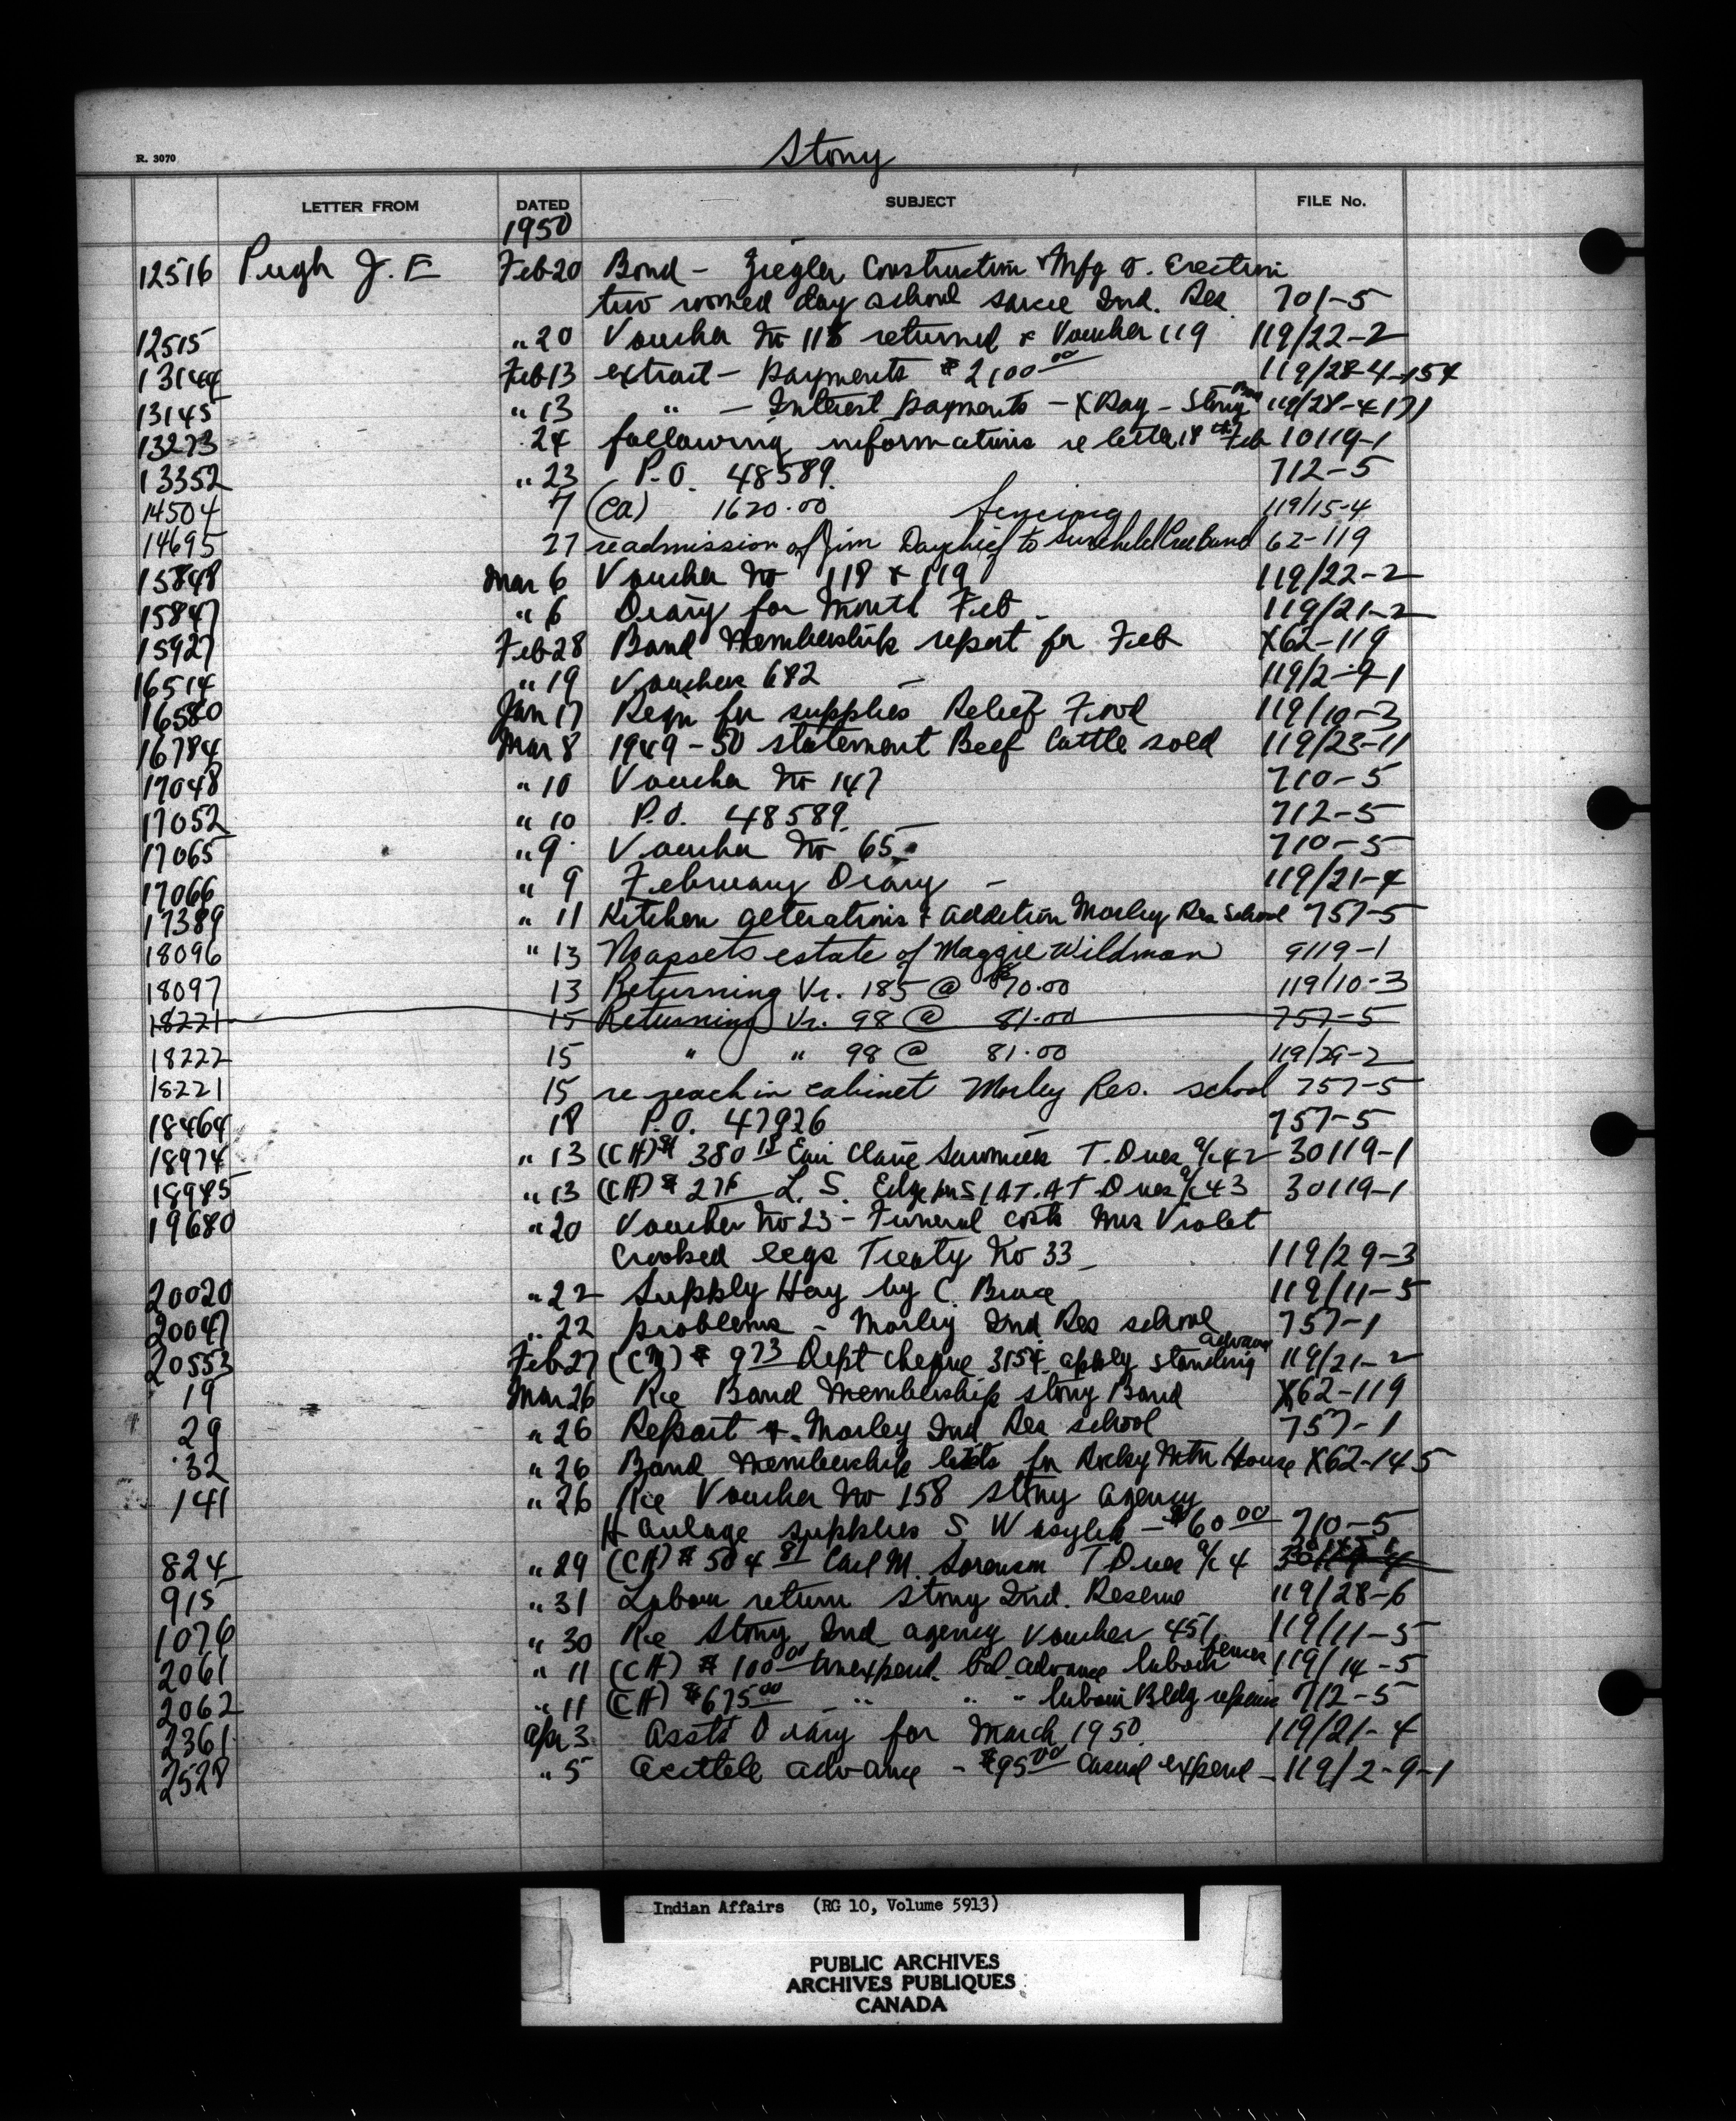 Stony
R. 3070
LETTER FROM DATED SUBJECT FILE No.
1950
12516 Pugh J. E Feb 20 Bond - Ziegler Construction & Mfg Erection
two roomed day school Sarcee Ind. Res 701-5
12515 " 20 Voucher No 118 returned & Voucher 119 119/22-2
13144 Feb 13 extract - payments $2100 00 119/28-4-154
13145 " 13 " - Interest payments - X Ray - Stony 119/28-4-171
13273 24 following informations re letter 18 th Feb 10119-1
13352 " 23 P.O. 48589 712-5
14504 7 (CA) 1620.00 fencing 119/15-4
14695 27 readmission of Jim Daychief to Sunchild Cree Band 62-119
15848 Mar 6 Voucher No 118 & 119 119/22-2
15847 " 6 Diary for Month Feb 119/21-2
15927 Feb 28 Band Membership report for Feb X62-119
16514 " 19 Vouchers 682 - 119/2-9-1
16580 Jan 17 Reqn for supplies Relief Food 119/10-3
16784 Mar 8 1949-50 statement Beef Cattle sold 119/23-11
17048 " 10 Voucher No 147 710-5
17052 " 10 P.O. 48589 712-5
17065 " 9 Voucher No 65 - 710-5
17066 " 9 February Diary - 119/21-4
17389 " 11 Kitchen alterations & addition Morley Res School 757-5
18096 " 13 No assets estate of Maggie Wildman 9119-1
18097 13 Returning Vr. 185 @ $70.00 119/10-3
18221 15 Returning Vr. 98 @ 81.00 757-5
18222 15 " " 98 @ 81.00 119/29-2
18221 15 re reach in cabinet Morley Res. school 757-5
18464 18 P.O. 47926 757-5
18974 " 13 (CH) $380 18 Eau Claire Sawmills T. Dues a/c 42 30119-1
18985 " 13 (CH) $ L. S. Edge T. Dues a/c 43 30119-1
19680 " 20 Voucher No 23 - Funeral costs Mrs Violet
Crooked legs Treaty No 33 - 119/29-3
20020 " 22 Supply Hay by C. Bruce 119/11-5
20047 " 22 problems - Morley Ind. Res school 757-1
20553 Feb 27 $ 973 Dept cheque 3154 apply standing advance 119/21-2
19 Mar 26 Re Band Membership Stony Band X62-119
29 " 26 Report Morley Ind Res school 757-1
32 " 26 Band Membership lists for Rocky Mtn House X62-145
141 " 26 Re Voucher No 158 Stony Agency
Haulage supplies S. Wasylik - $60 00 710-5
824 " 29 (CH) $504 81 Carl M. Sorenson T Dues a/c 4
915 " 31 Labour return Stony Ind. Reserve 119/28-6
1076 " 30 Re Stony Ind agency voucher 451 119/11-5
2061 " 11 (CH) $100 00 unexpend. bal. advance labour fences 119/14-5
2062 " 11 (CH) $675 00 " " " labour Bldg repairs 712-5
2361 Apr 3 Assts Diary for March 1950 119/21-4
2528 " 5 advance - $95 00 Casual expend - 119/2-9-1
Indian Affairs (RG 10, Volume 5913)
PUBLIC ARCHIVES
ARCHIVES PUBLIQUES
CANADA